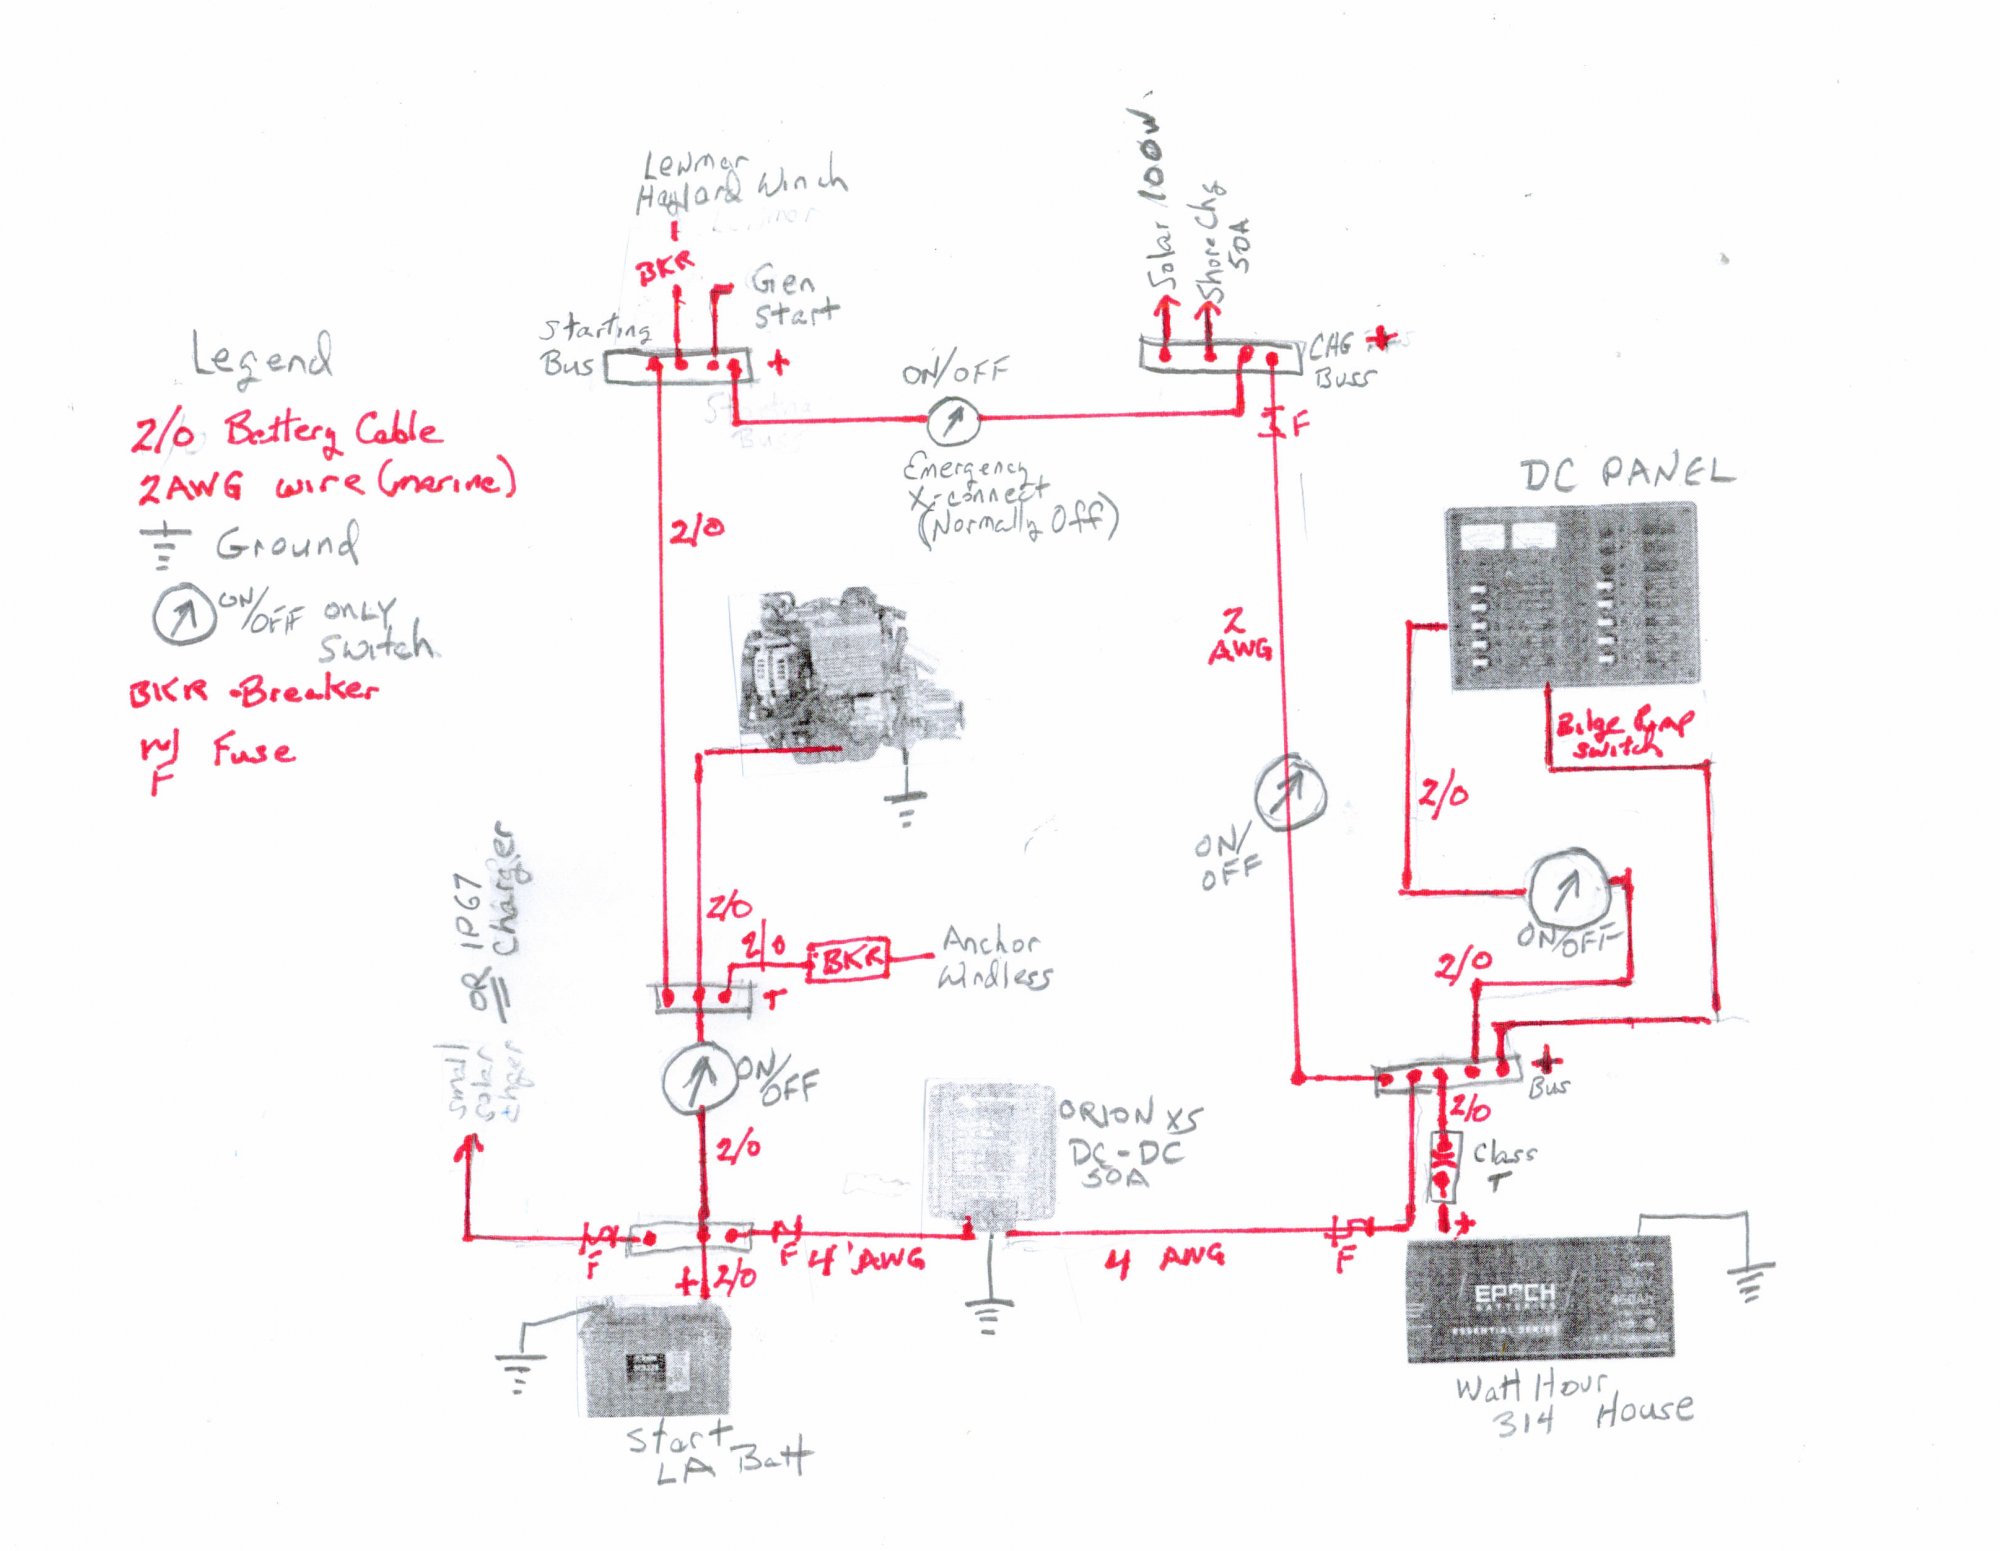 Lewmar
Haylard Winch
BKR
Gen
Start
Starting
Bus
+
ON/OFF
Emergency
X-connect
(Normally Off)
Solar 100W
Shore Chg
50A
CHG +
Buss
F
Legend
2/0 Battery Cable
2AWG wire (marine)
Ground
ON/OFF ONLY
Switch
BKR - Breaker
F Fuse
DC PANEL
2/0
2
AWG
Bilge Pump
Switch
2/0
ON/
OFF
ON/OFF
2/0
2/0
2/0
BKR
Anchor
Windless
+
ON/
OFF
2/0
Small
Solar
Chger
OR IP67
Charger
ORION XS
DC-DC
50A
+
Bus
2/0
Class
T
+
F
F
4 AWG
4 AWG
F
+ 2/0
Start
LA Batt
EPOCH
BATTERIES
ESSENTIAL SERIES
460AH
Watt Hour
314 House